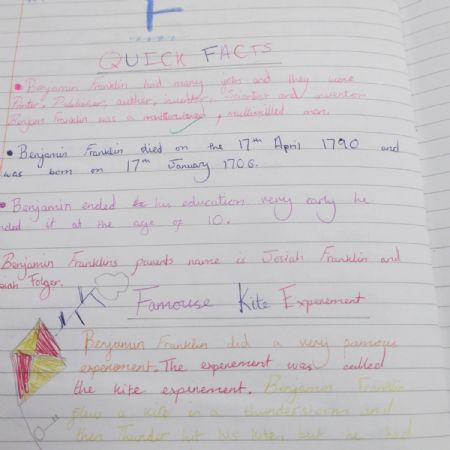 QUICK FACTS
• Benjamin Franklin had many jobs and they were
Printer, Publisher, author, inventor, Scientist and inventor
Benjamin Franklin was a multitalented, multiskilled man.
• Benjamin Franklin died on the 17th April 1790 and
was born on 17th January 1706.
• Benjamin ended his education very early he
ended it at the age of 10.
Benjamin Franklins parents name is Josiah Franklin and
Folger.
Famouse Kite Experement
Benjamin Franklin did a very famous
experement. The experement was called
the kite experement. Benjamin Franklin
flew a kite in a thunderstorm and
then Thunder hit his kite, but he had